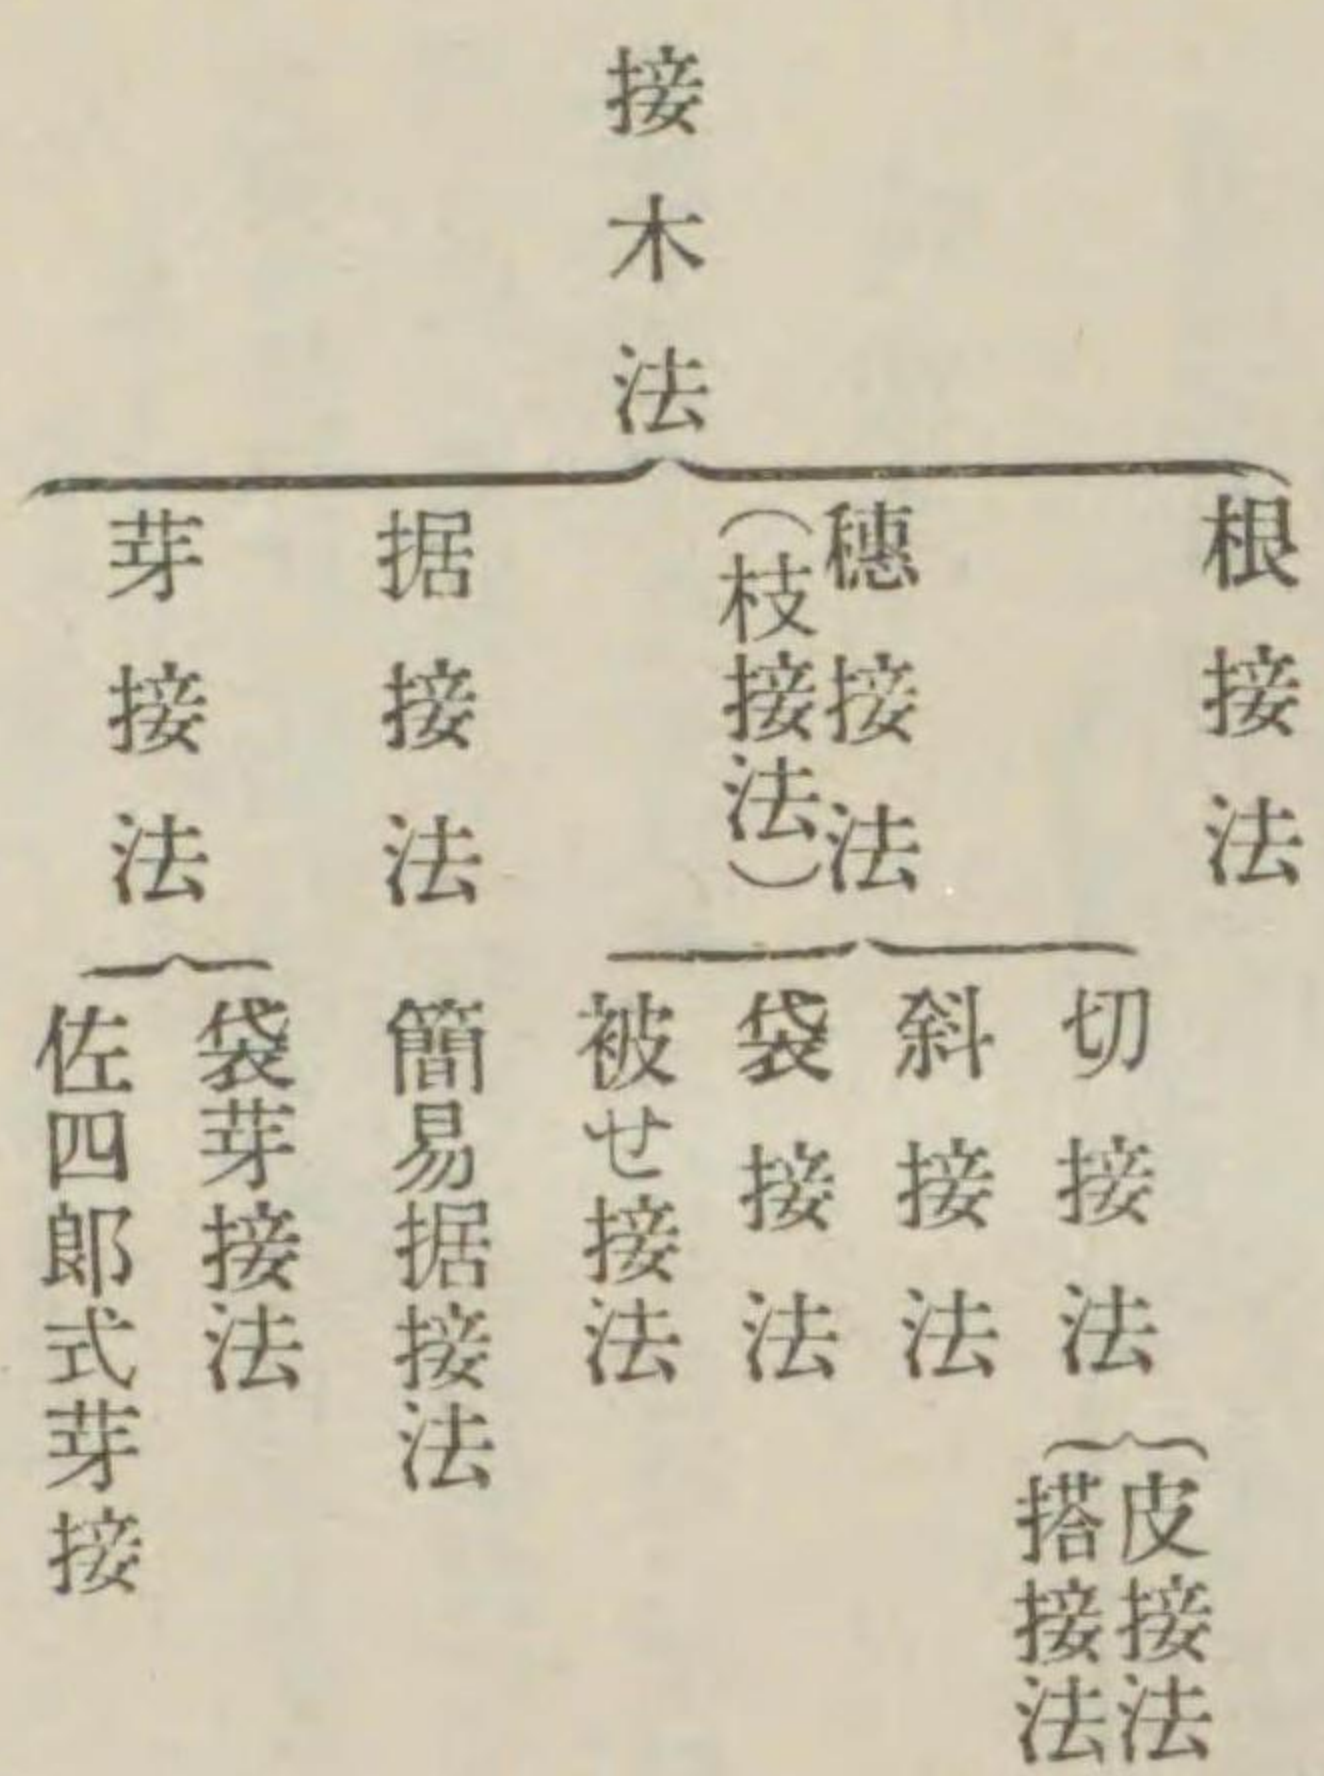 接木法
根接法
穗接法
(枝接法)
切接法
皮接法
搭接法
斜接法
袋接法
被せ接法
据接法
簡易据接法
芽接法
袋芽接法
佐四郎式芽接